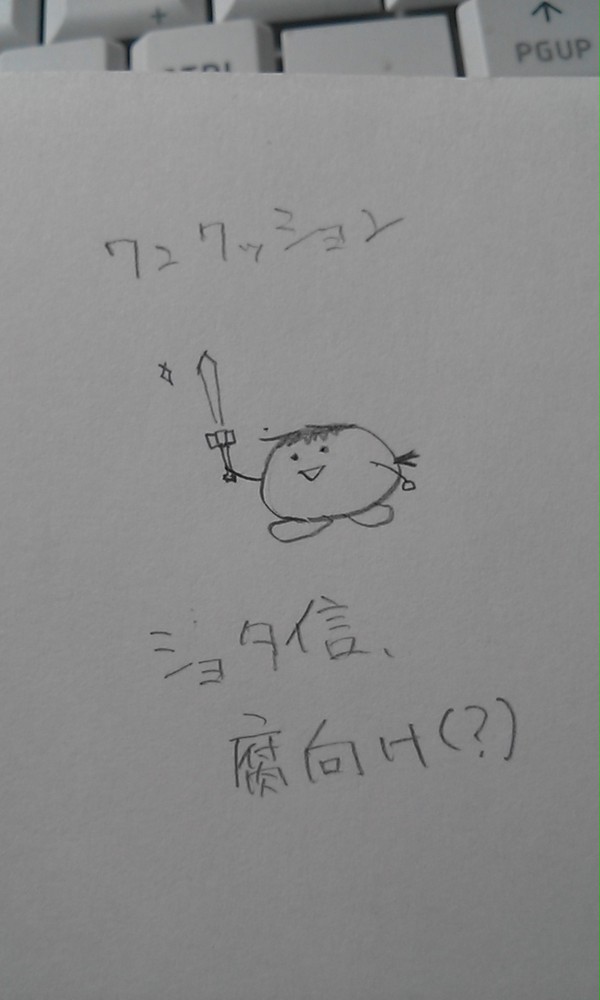 PGUP
ワンクッション
ショタ信、
腐向け(?)